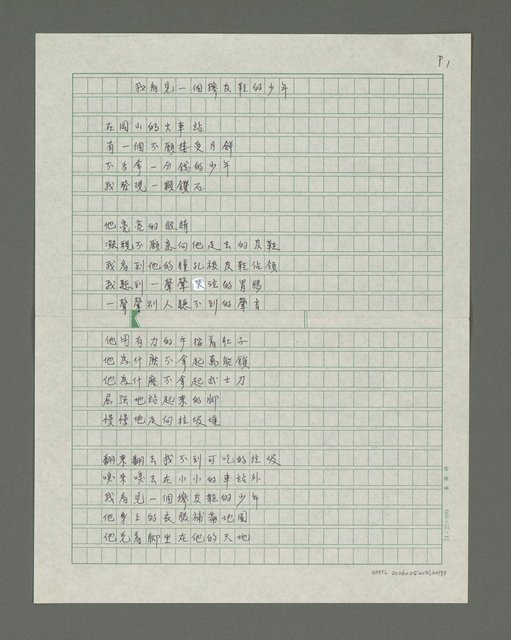 P1
我看見一個擦皮鞋的少年
在岡山的火車站
有一個不願接受月餅
不去拿一分錢的少年
我發現一顆鑽石
他亮亮的眼睛
凝視不願意向他走去的皮鞋
我看到他的瞳孔被皮鞋佔領
我聽到一聲聲哭泣的胃腸
一聲聲別人聽不到的聲音
他用有力的手擋著肚子
他為什麼不拿起萬能鎖
他為什麼不拿起武士刀
屈强地站起來的腳
慢慢地走向垃圾堆
翻來翻去找不到可吃的垃圾
嗅來嗅去在小小的車站外
我看見一個擦皮鞋的少年
他身上的衣服補滿地圖
他光著腳坐在他的天地
24×25=600
NMTL 20060250021